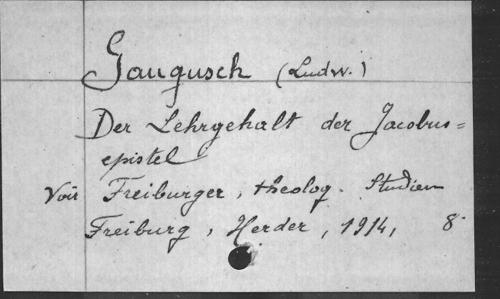 Gaugusch (Ludw.)
Der Lehrgehalt der Jacobus=
epistel
Voir Freiburger, theolog. Studien
Freiburg, Herder, 1914, 8°